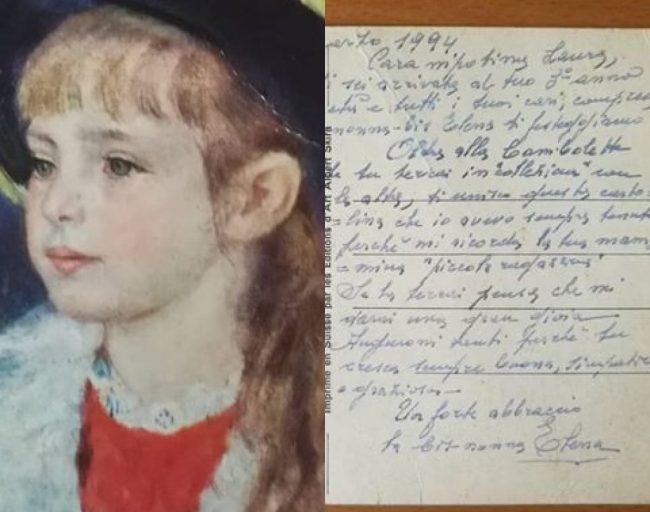 arzo 1994
Cara nipotina Laura,
i sei arrivata al tuo 3° anno
età e tutti i tuoi cari, compresa
nonna-bis Elena ti festeggiamo
Oltre alla bamboletta
e tu terrai in "collezione" con
le altre, ti unisco questa carto=
=lina che io avevo sempre tenuta
perché mi ricorda la tua mam=
=mina "piccola ragazzina"
Se la terrai pensa che mi
darai una gran gioia
Auguroni tanti perché tu
cresca sempre buona, simpatica
e graziosa
Un forte abbraccio
la bis-nonna Elena
Imprimé en Suisse par les Editions d'Art Albert Skira